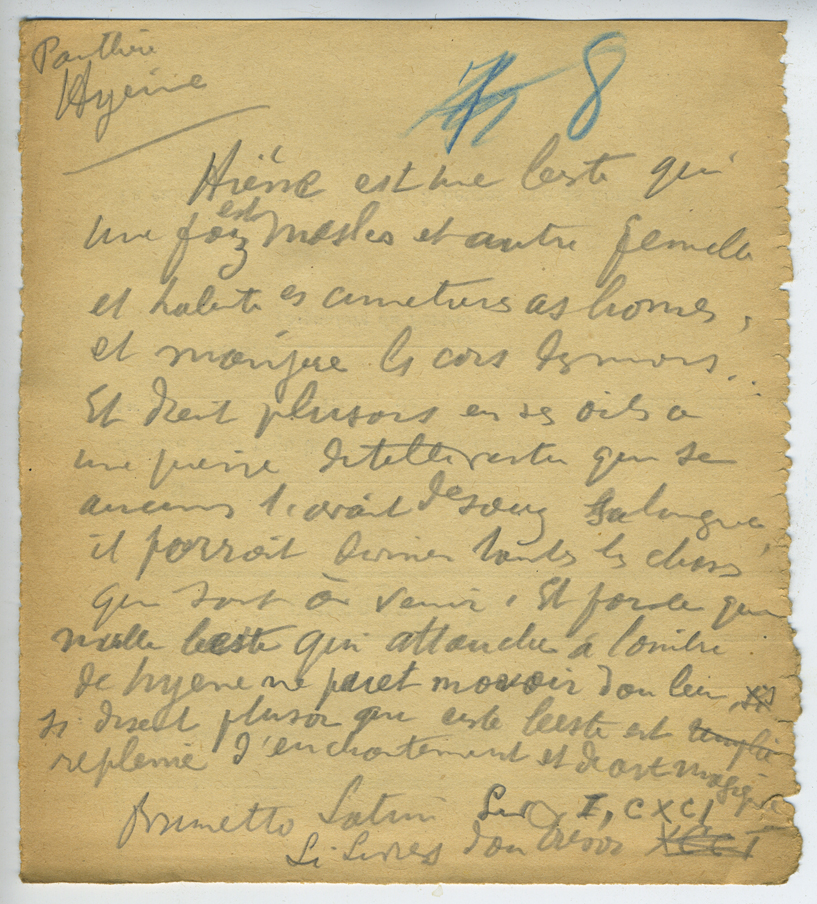 Panthère
Hyène
8
Hiène est une beste qui
une foiz est masles et autre femele
et habite es cimetieres as homes,
et manjue les cors des mors...
Et dient plusors en ses oils a
une pierre de tel vertu que se
aucuns l'avoit desouz sa langue,
il porroit deviner toutes les choses
qui sont à venir. Et
nulle beste qui atouche à l'ombre
de hyene ne puet movoir dou leu,
si dient plusor que ceste beste est
replenie d'enchantement et de art magique
Brunetto Latini I, CXCI
Li Livres dou Tresor